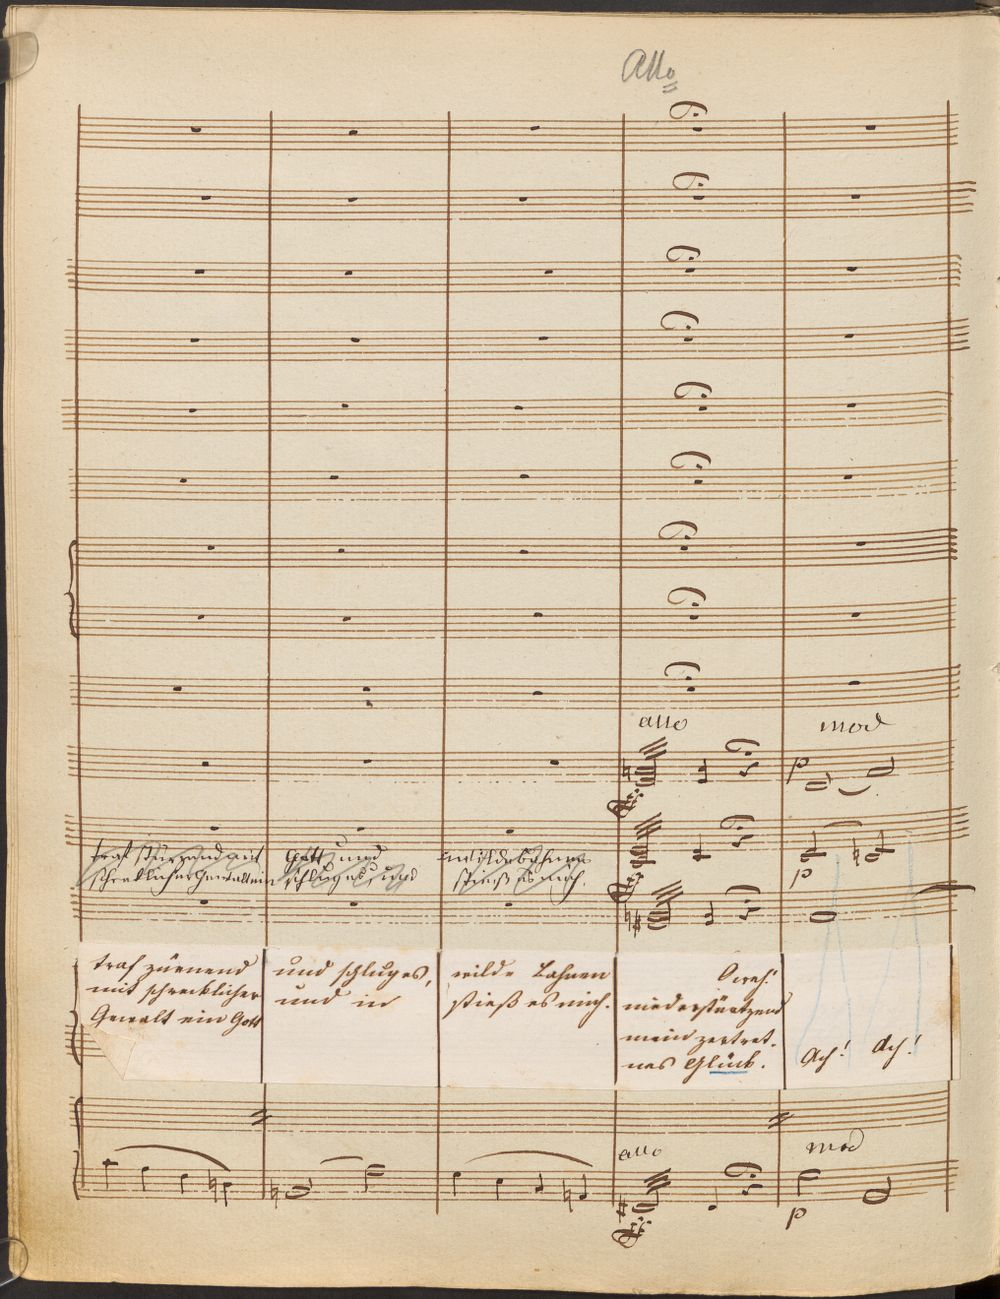 Allo
allo
mod
p
p
traf stürzend mit
schrecklicher Gewalt ein
Gott und
schlug es, und
in wilde Bahnen
stieß es mich.
traf zürnend
mit schrecklicher
Gewalt ein Gott
und schlug es,
und in
wilde Bahnen
stieß es mich.
O weh!
niederstürtzend
mein zertret-
nes Glück.
Ach! Ach!
allo
mod
p